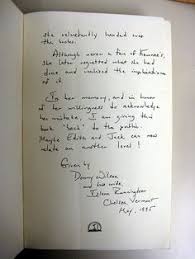 she reluctantly handed over
the books.
Although never a fan of Kerouac's,
she later regretted what she had
done and realized the implications
of it.
To her memory, and in honor of
her willingness to acknowledge
her mistake, I am giving this
book "back" to the public.
Maybe Edith and Jack can now
relate on another level!
Given by
Danny Wilson
and his wife,
Chelsea, Vermont
May, 1995